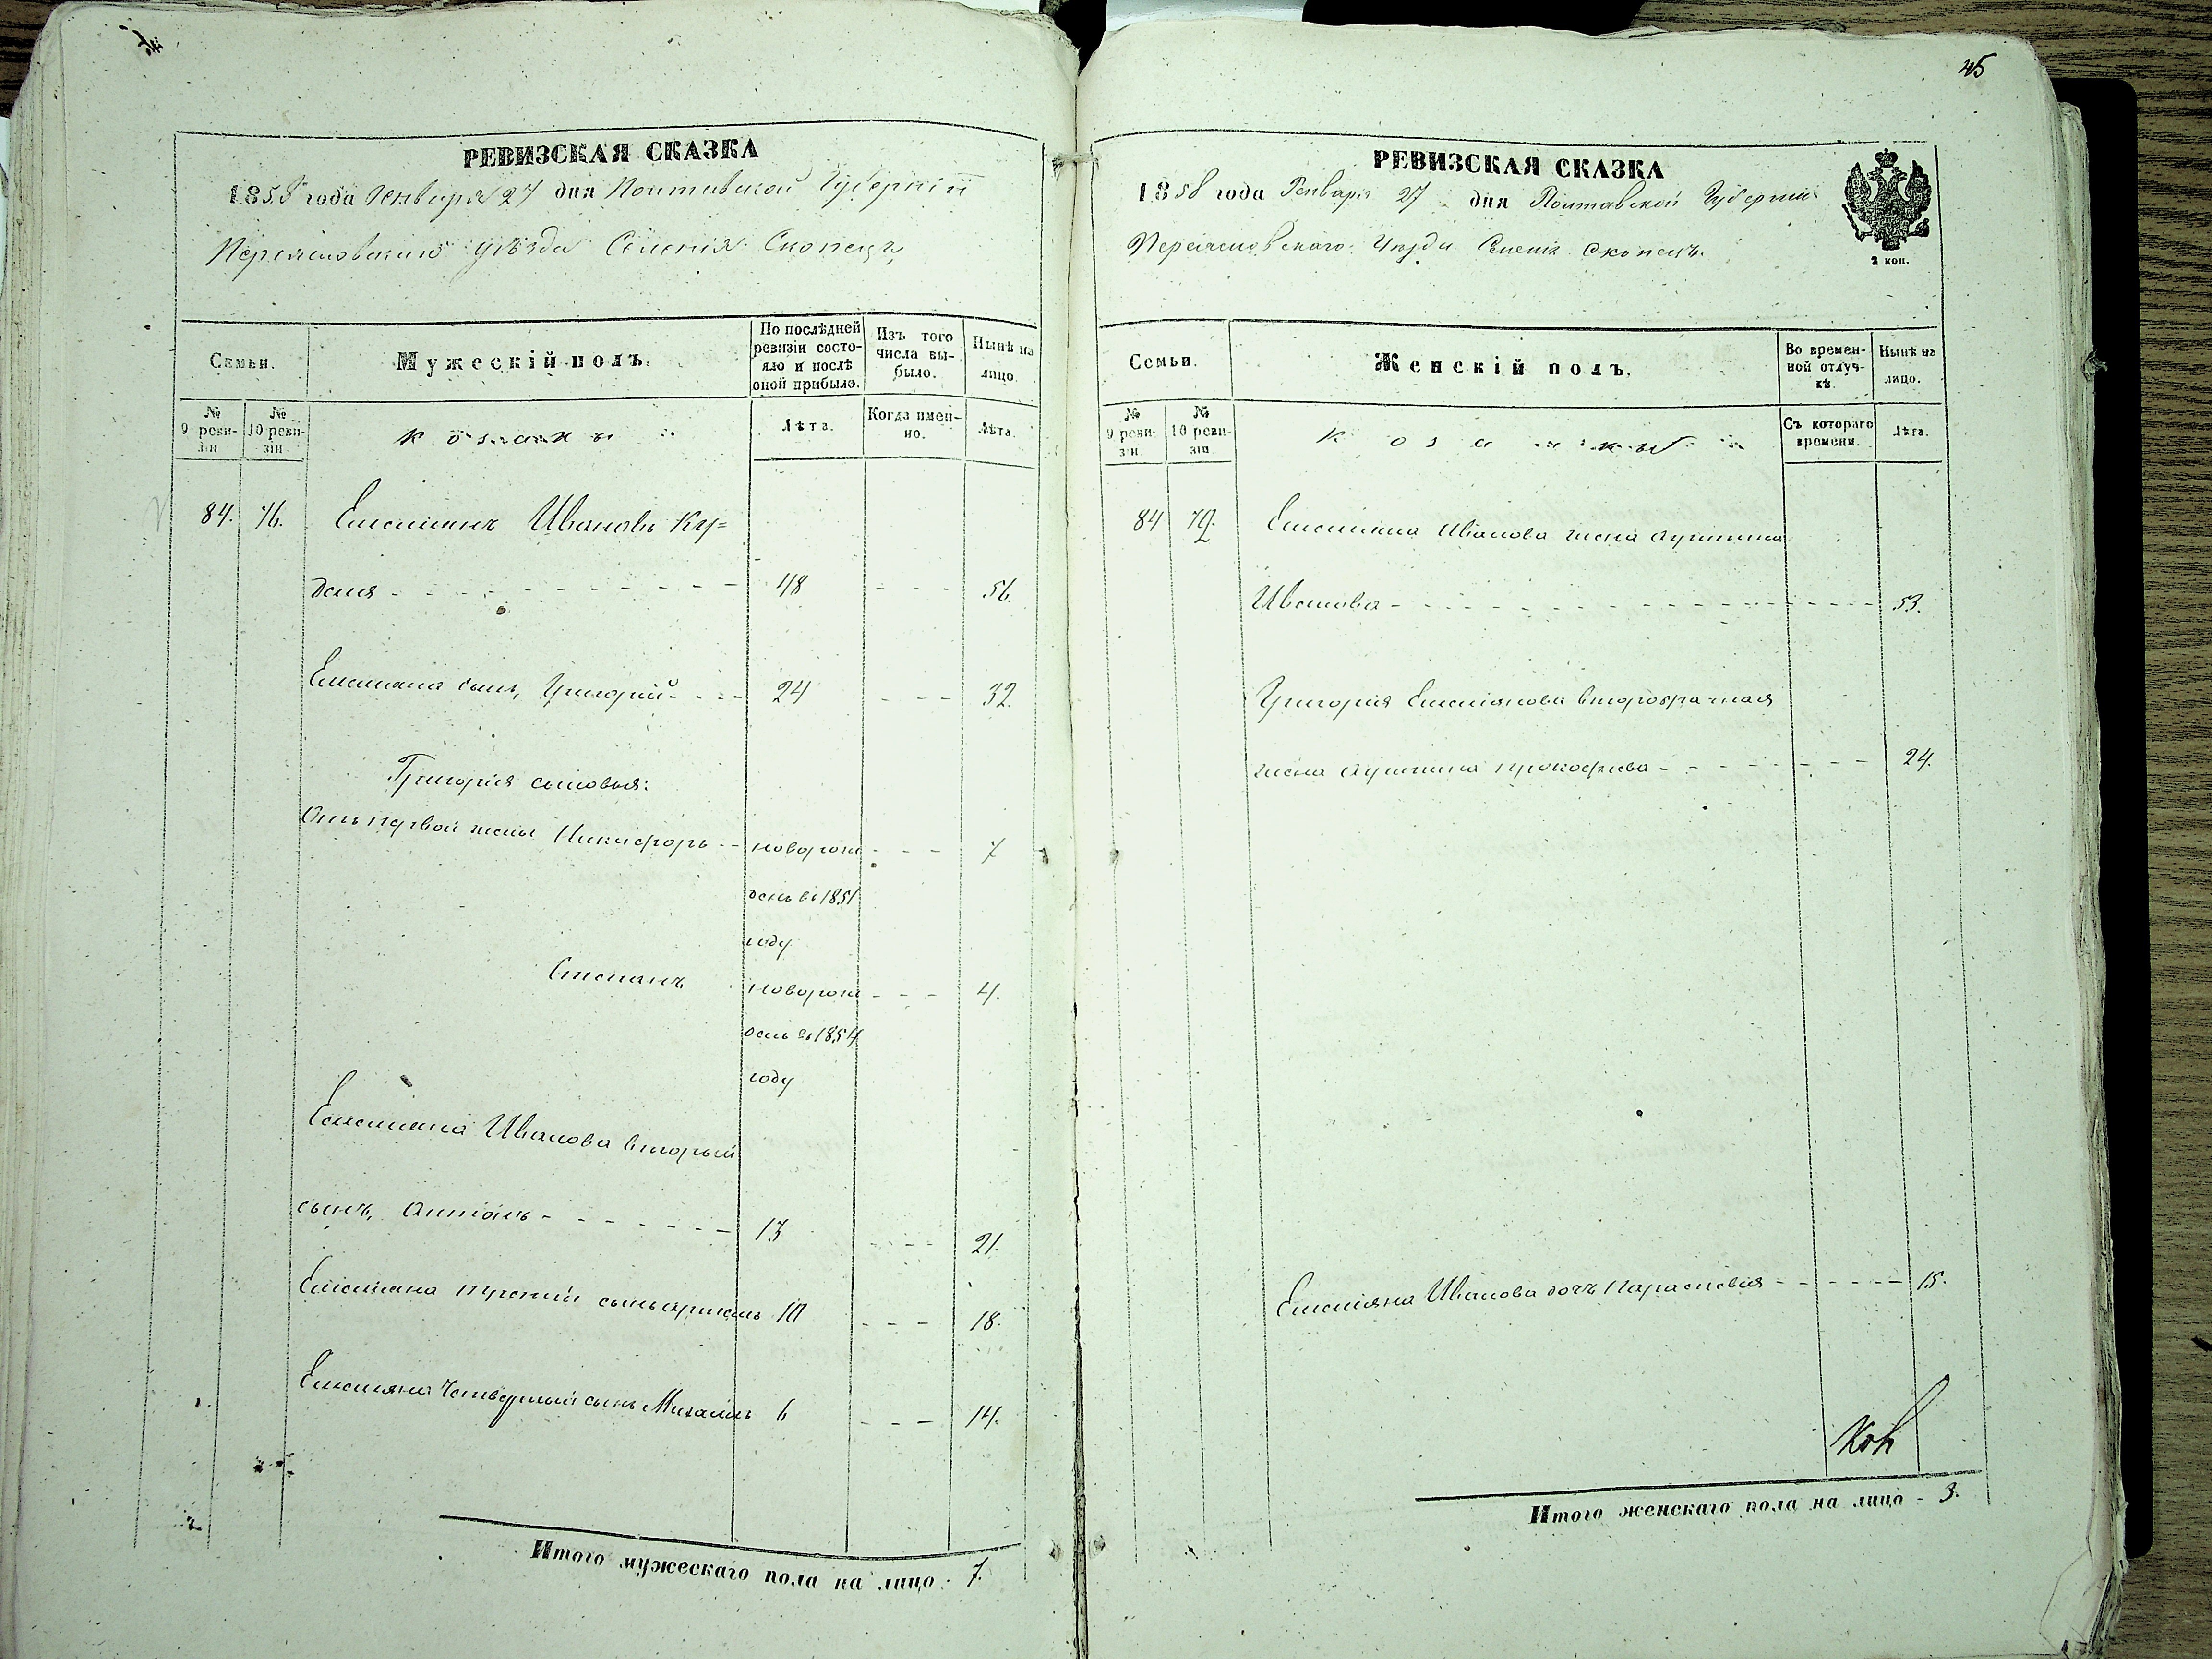 45
РЕВИЗСКАЯ СКАЗКА
1858 года Генваря 27 дня Полтавской Губернии
Переяславского уѣзда Селения Скопецъ
Семьи.
Мужескій полъ.
По послѣдней ревизіи состояло и послѣ оной прибыло.
Изъ того числа выбыло.
Нынѣ на лицо.
№ 9 ревизіи
№ 10 ревизіи
козаки
Лѣта.
Когда именно.
Лѣта.
84. 76. Емелианъ Ивановъ Ку=
деля 48 56.
Емелиана сынъ, Григорий 24 32.
Григория сыновья:
Отъ первой жены Никифоръ новорож 7
денъ въ 1851
году
Степанъ новорож 4.
денъ въ 1854
году
Емелиана Иванова вторый
сынъ, Антонъ 13 21.
Емелияна третий сынъ 10 18.
Емелияна Четвертый сынъ Михаилъ 6 14.
Итого мужескаго пола на лицо 7.
РЕВИЗСКАЯ СКАЗКА
1858 года Генваря 27 дня Полтавской Губернии
Переяславского Уезда Селения Скопецъ.
2 коп.
Семьи.
Женскій полъ.
Во временной отлучкѣ.
Нынѣ на лицо.
№ 9 ревизіи
№ 10 ревизіи
Съ котораго времени.
Лѣта.
84 Емелияна Иванова жена
Иванова 53.
Григория Емелиянова второбрачная
жена Прокофиева 24.
Емелияна Иванова дочь Параскевия 15.
Итого женскаго пола на лицо - 3.